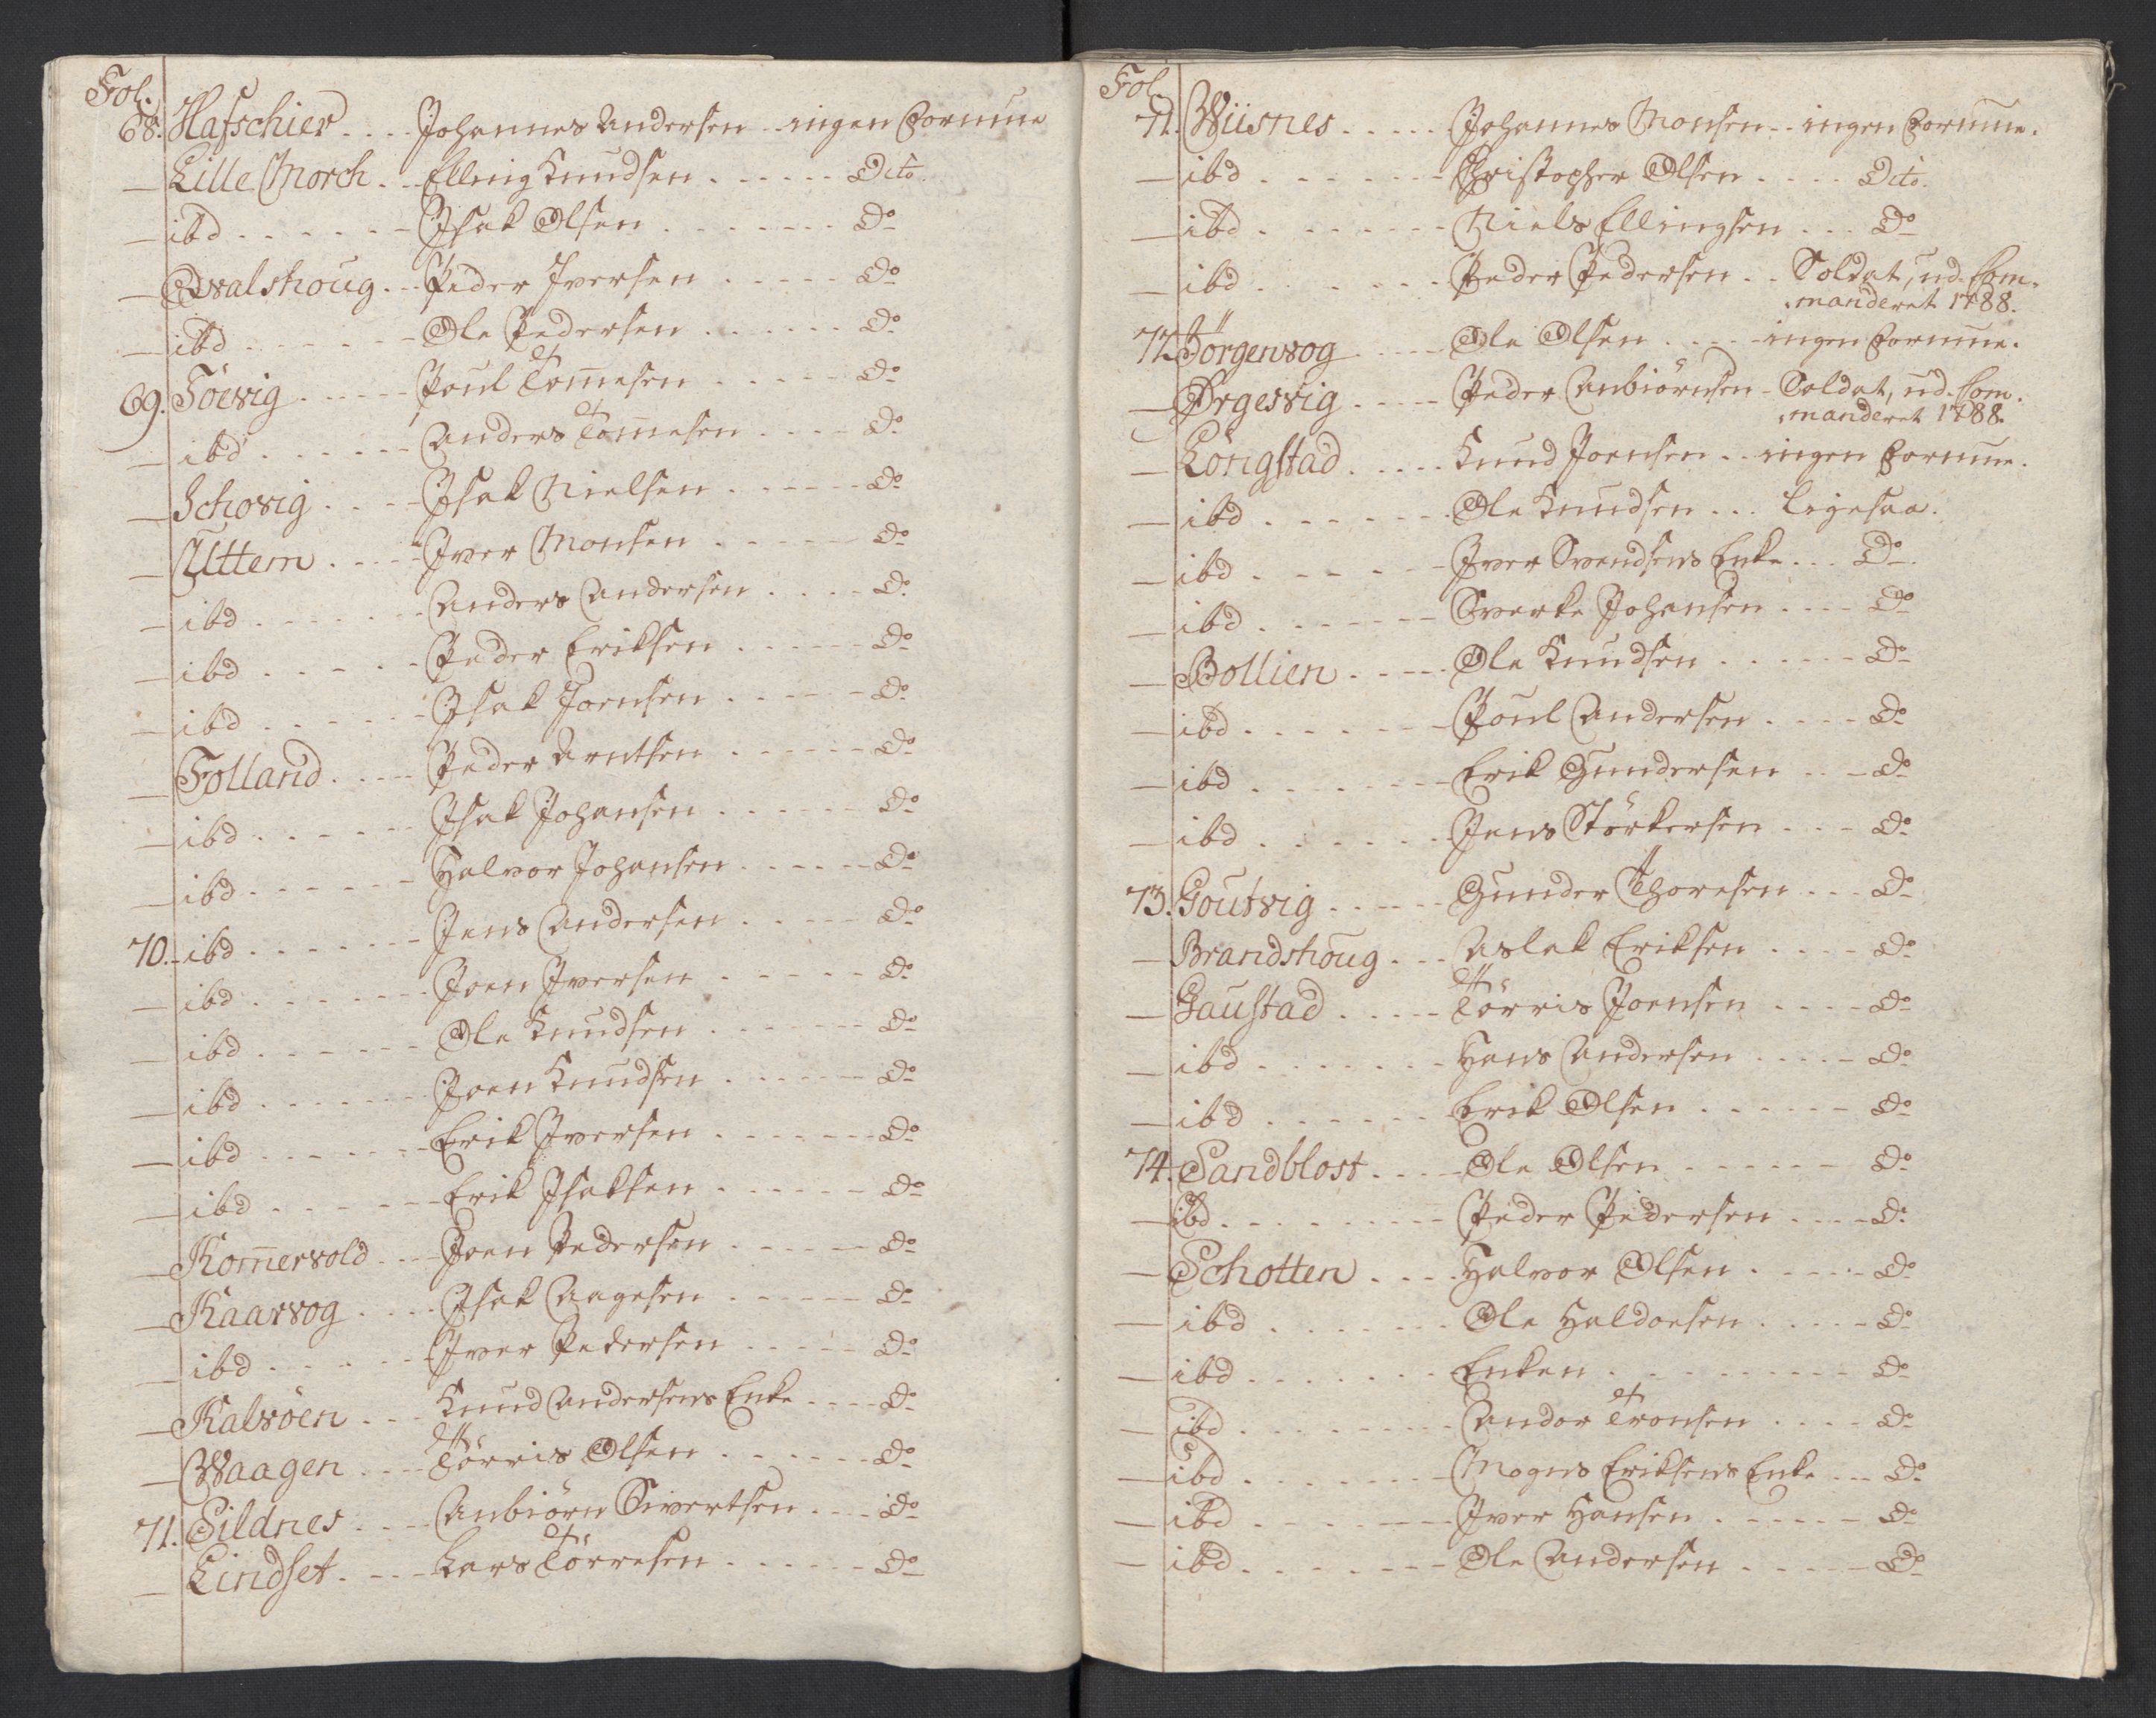 Fol.
68. Hafschier . . . . Johannes Andersen . . ingen Formue
— Lille Morch . . Elling Knudsen . . . . . . Dito.
— ibd . . . . . . Isak Olsen . . . . . . . Do
— Qvalshoug . . Peder Iversen . . . . . Do
— ibd . . . . . . Ole Pedersen . . . . . . Do
69. Töevig . . . . . Poul Tom̄esen . . . . . Do
— ibd . . . . . . Anders Tom̄esen . . . . Do
— Schovig . . . . Isak Nielsen . . . . . . Do
— Uttem . . . . Iver Monsen . . . . . . Do
— ibd . . . . . . Anders Andersen . . . . Do
— ibd . . . . . Peder Eriksen . . . . . Do
— ibd . . . . . . Isak Joensen . . . . . Do
— Folland . . . . Peder Arntsen . . . . . . Do
— ibd . . . . . . Isak Johansen . . . . . . Do
— ibd . . . . . . Halvor Johansen . . . . . Do
70. ibd . . . . . . Jens Andersen . . . . . Do
— ibd . . . . . . Joen Iversen . . . . . Do
— ibd . . . . . . Ole Knudsen . . . . . . Do
— ibd . . . . . . Joen Knudsen . . . . . . Do
— ibd . . . . . . Erik Iversen . . . . . . Do
— ibd . . . . . . Erik Isaksen . . . . . . Do
— Kom̄ervold . . . Joen Pedersen . . . . . Do
— Kaarvog . . . . Isak Aagesen . . . . . . Do
— ibd . . . . . . Iver Pedersen . . . . . Do
— Kalvöen . . . Knud Andersens Enke . . . . Do
— Waagen . . . . Törris Olsen . . . . . . Do
71. Sildnes . . . . Anbiörn Sivertsen . . . Do
— Lindset . . . . Lars Törresen . . . . . . Do
Fol.
71. Wiisnes . . . . . Johannes Monsen . . ingen Formue.
— ibd . . . . . . Christopher Olsen . . . . Dito.
— ibd . . . . . . Niels Ellingsen . . . Do
— ibd . . . . . . Peder Pedersen . . Soldat, ud. Com-
manderet 1788.
72. Jörgenvog . . . . Ole Olsen . . . . ingen Formue.
— Ørgesvig . . . . Peder Anbiörnsen . Soldat, ud. Com-
manderet 1788.
— Löngstad . . . . . Knud Joensen . . ingen Formue.
— ibd . . . . . . Ole Knudsen . . . ligesaa.
— ibd . . . . . . Iver Svendsens Enke . . . Do
— ibd . . . . . . Sverke Johansen . . . . Do
— Bollien . . . . . Ole Knudsen . . . . . . Do
— ibd . . . . . . Poul Andersen . . . . Do
— ibd . . . . . . Erik Gundersen . . . Do
— ibd . . . . . . Jens Störkersen . . . Do
73. Goutvig . . . . . Gunder Thoresen . . . Do
— Brandshoug . . . Aslak Eriksen . . . . Do
— Gaustad . . . . . Törris Joensen . . . . Do
— ibd . . . . . . Hans Andersen . . . . . Do
— ibd . . . . . . Erik Olsen . . . . . . Do
74. Sandblost . . . . Ole Olsen . . . . . . Do
— ibd . . . . . . Peder Pedersen . . . . Do
— Schotten . . . . Halvor Olsen . . . . . Do
— ibd . . . . . . Ole Haldoesen . . . . . Do
— ibd . . . . . . Enken . . . . . . . . Do
— ibd . . . . . . Andor Tronsen . . . . Do
— ibd . . . . . . Mogens Eriksens Enke . . . Do
— ibd . . . . . . Iver Hansen . . . . . . Do
— ibd . . . . . . Ole Andersen . . . . . Do